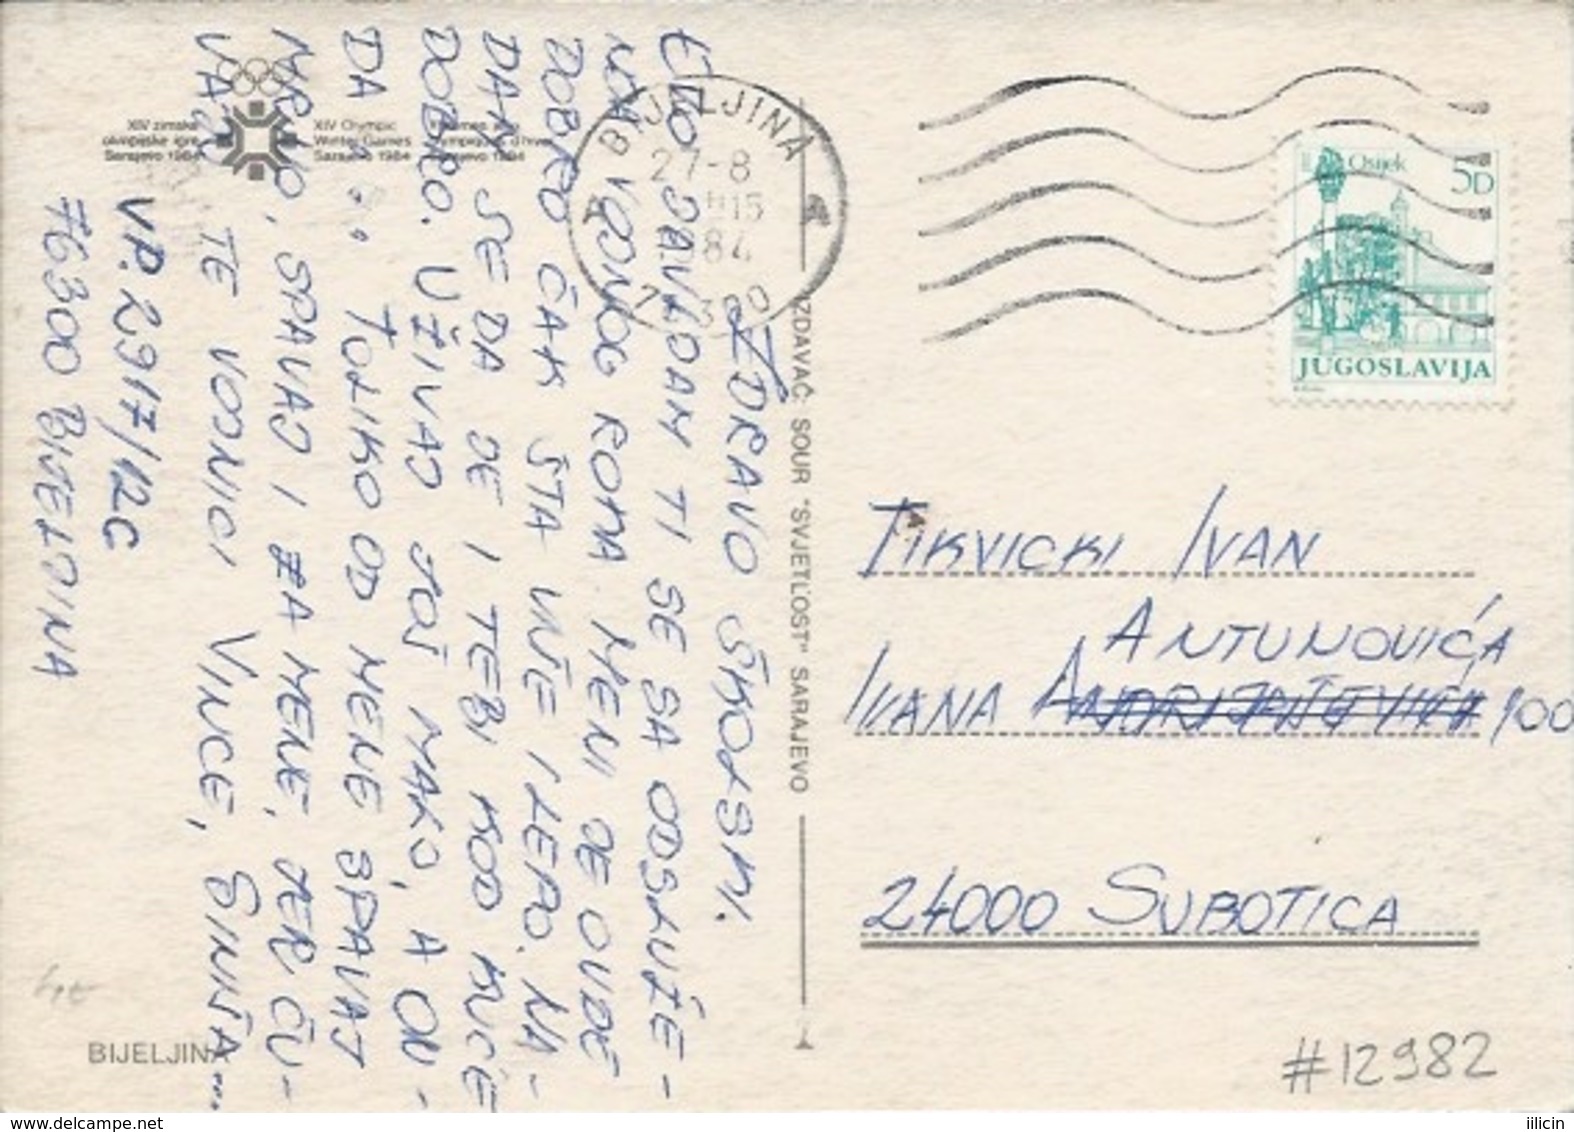 ZDRAVO ŠKOLSKI.
EVO DA VIDAM TI SE SA ODSLUŽE-
NOG VOJNOG ROKA. MENI JE OVDE
DOBRO ČAK ŠTA VIŠE I LEPO. NA-
DAM SE DA JE I TEBI KOD KUĆE
DOBRO. UŽIVAJ JOŠ MALO, A ON-
DA ... TOLIKO OD MENE SPAVAJ
MIRNO, SPAVAJ I ZA MENE, JER ČU-
VAJU TE VOJNICI VINCE, SINIŠA...
VP. 2917/12C
76300 BIJELJINA
XIV zimske
olimpijske igre
Sarajevo 1984
XIV Olympic
Winter Games
Sarajevo 1984
Sarajevo 1984
BIJELJINA
IZDAVAČ SOUR "SVJETLOST" SARAJEVO
BIJELJINA
27-8
15
84
Osijek
5D
JUGOSLAVIJA
TIKVICKI IVAN
ANTUNOVIĆA
IVANA 100
24000 SUBOTICA
#12982
iilicin